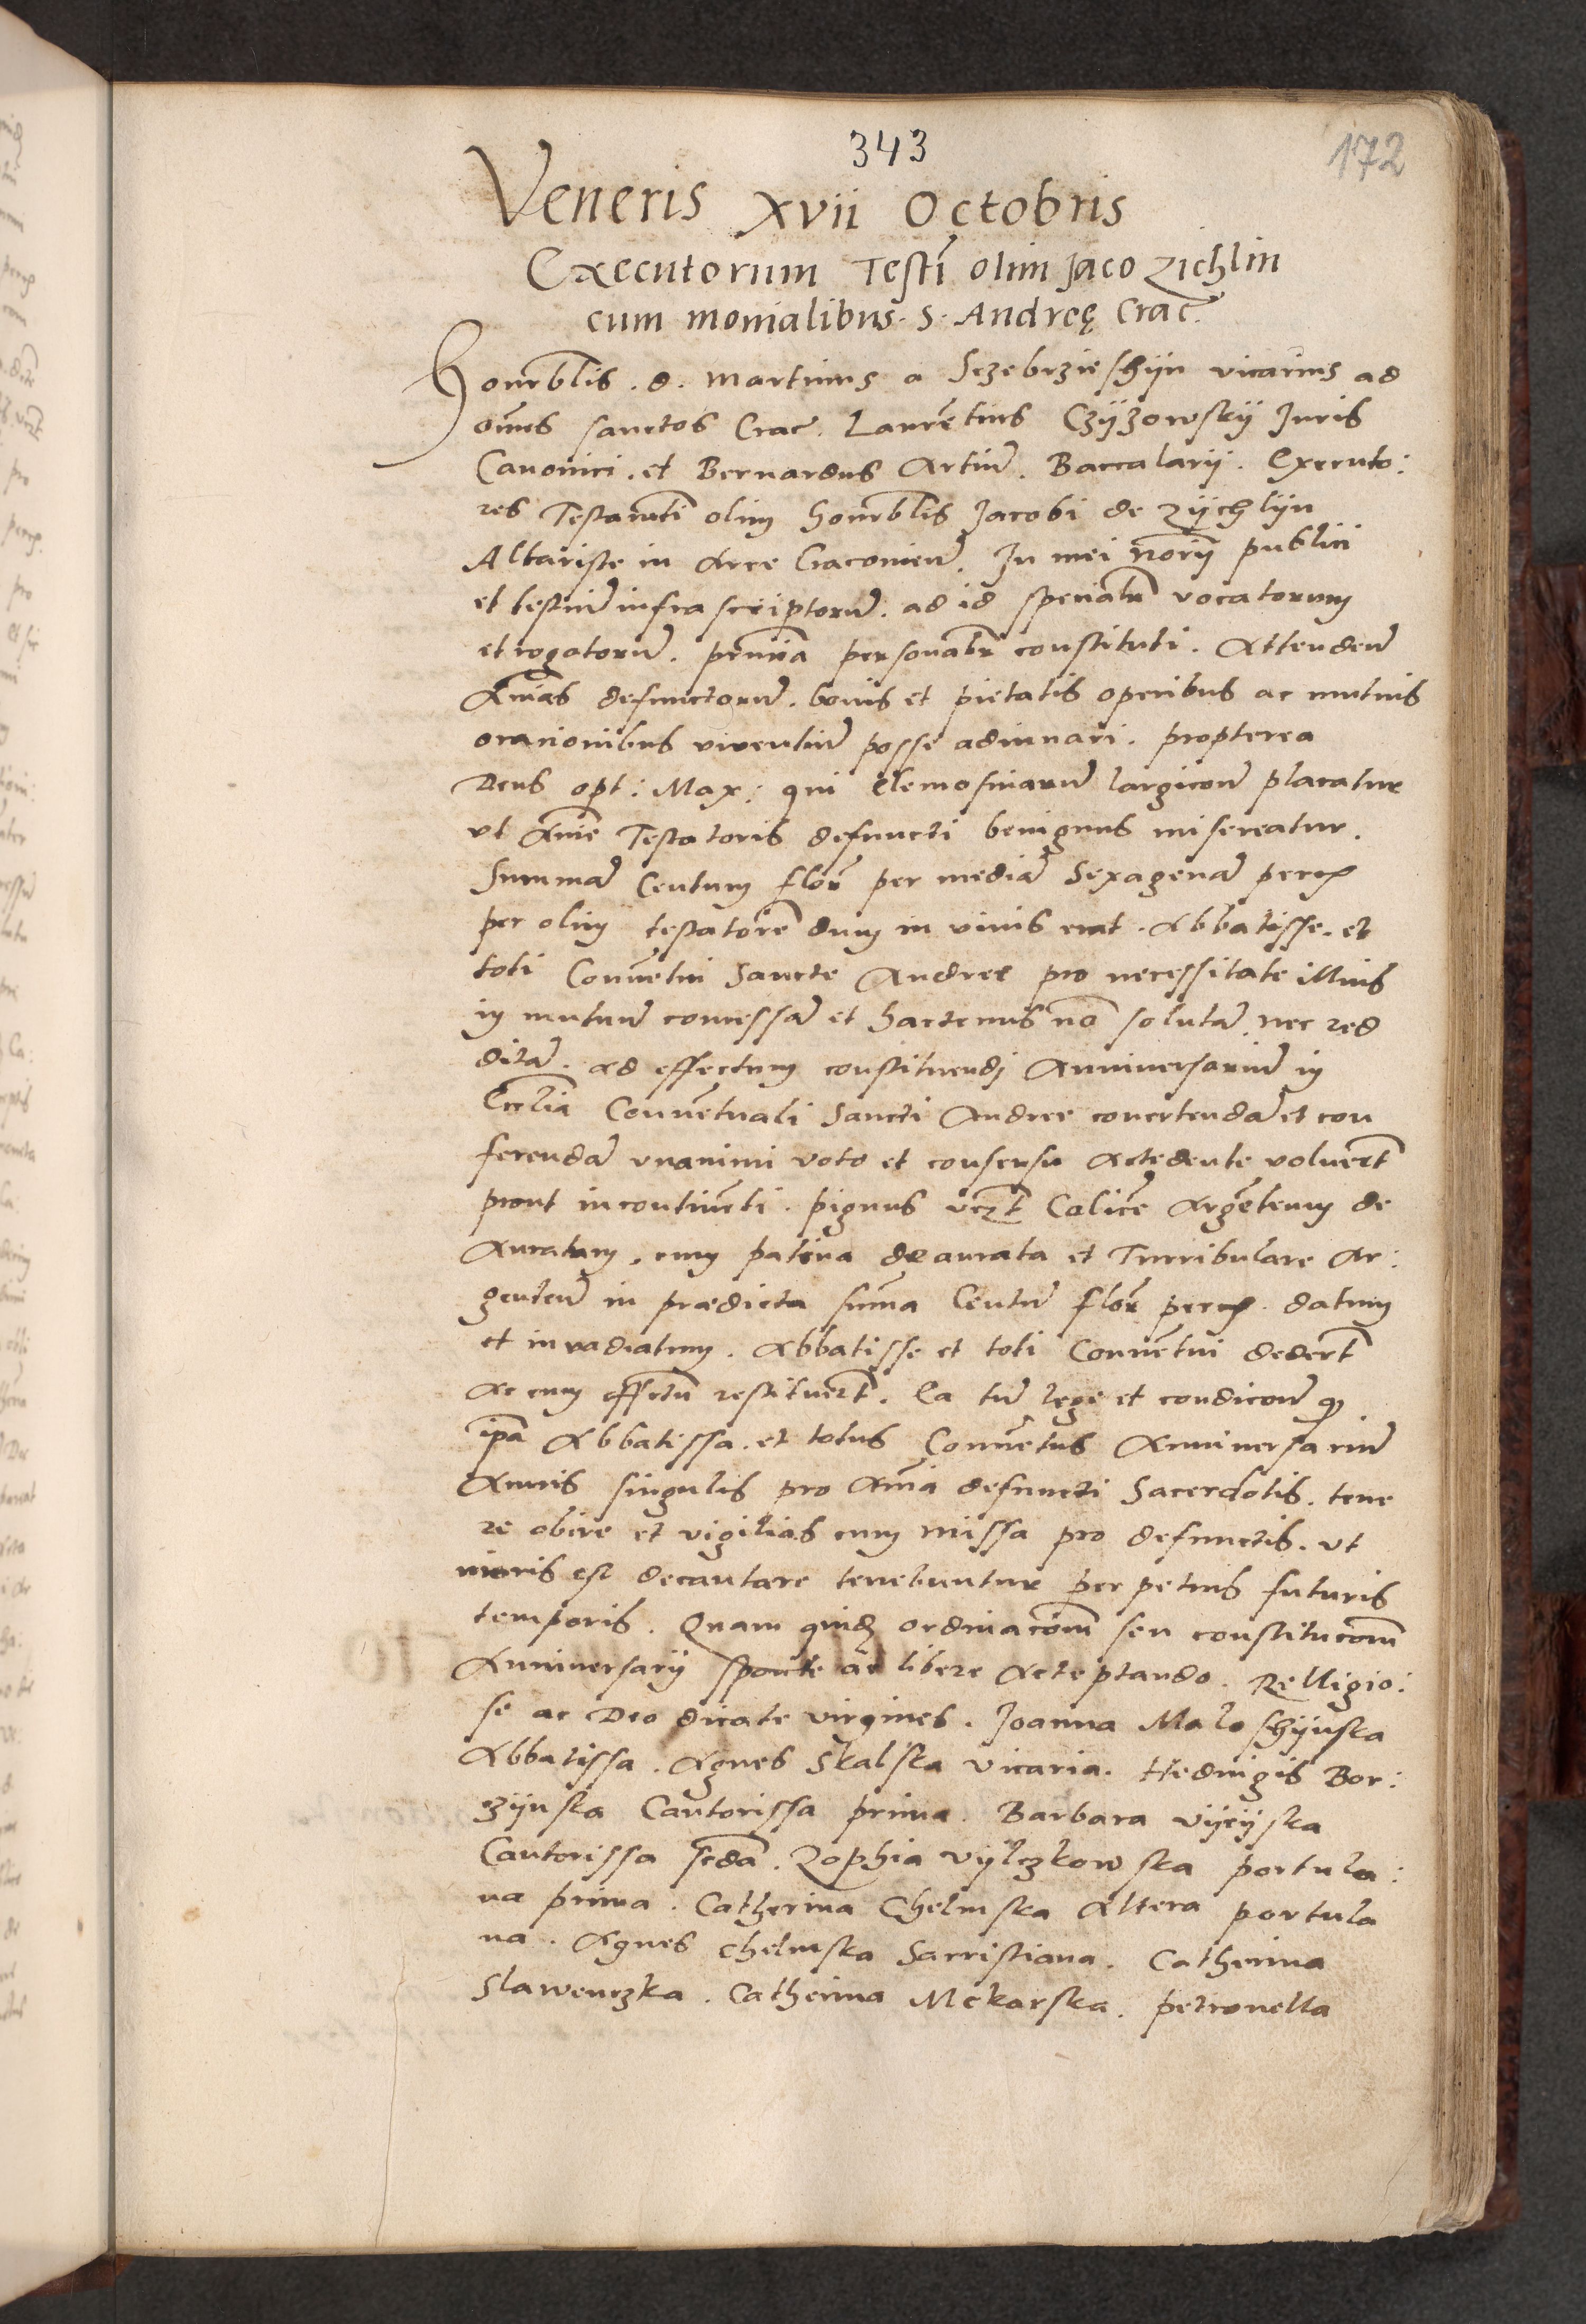 343
172
Veneris xvii Octobris
Executorum Testi olim Jaco Zichlin
cum monialibus. S. Andreę Crac.
Honorblis. d. Martinus a Sczebrzieshyn vicarius ad
omes sanctos Crac. Laurētius Czyzowsky Juris
Canonici. et Bernardus Artiu. Baccalarij. Executo:
res Testamti olim honorblis Jacobi de Zychlyn
Altariste in Arce Cracovien. In mei norij publici
et testiu infra scriptoru. ad id specialr vocatorum
et rogatoru. pntia personalr constituti. Attenden
Aīas defunctoru. bonis et pietatis operibus ac mutuis
oracionibus viventiu posse adiuuari. propterea
Deus opt: Max: qui elemosinaru largicone placatur
vt Aīe Testatoris defuncti benignus misereatur.
Summā Centum flor per mediā Sexagenā
per olim testatorē dum in viuis erat. Abbatisse. et
toti Convētui Sancte Andree pro necessitate illius
in mutuū concessā et hactenus nō solutā. nec red
ditā. ad effectum constituendi Anniversariū in
Ecclia Convētuali Sancti Andree convertendā et con
ferendā vnanimi voto et consensu accedente voluerт
prout incontinēti. pignus vczt Calicē Argēteum de
Auratum. cum patina deaurata et Turribulare Ar:
genteū in prædicta suma Centū flor datum
et invadiatum. Abbatisse et toti Convētui dedert
Ac cum effctu restituert. Ea tn lege et condicone qd
ipa Abbatissa. et totus Convētus Anniversariū
Annis singulis pro Aīa defuncti Sacerdotis. tene
re obire et vigilias cum missa pro defunctis. vt
moris est decantare tenebuntur perpetuis futuris
temporis. Quam quidē ordinaconem seu constituconem
Anniversarij sponte ac libere Acceptando. Relligio:
se ac Deo dicate virgines. Joanna Maloshynska
Abbatissa. Agnes Skalska vicaria. Hedvigis Bor:
zynska Cantorissa prima. Barbara
Cantorissa scda. Zophia Vylczkowska portula:
na prima. Catherina Chelmska Altera portula
na. Agnes Chelmska Sacristiana. Catherina
Slawenczka. Catherina Mekarska. Petronella